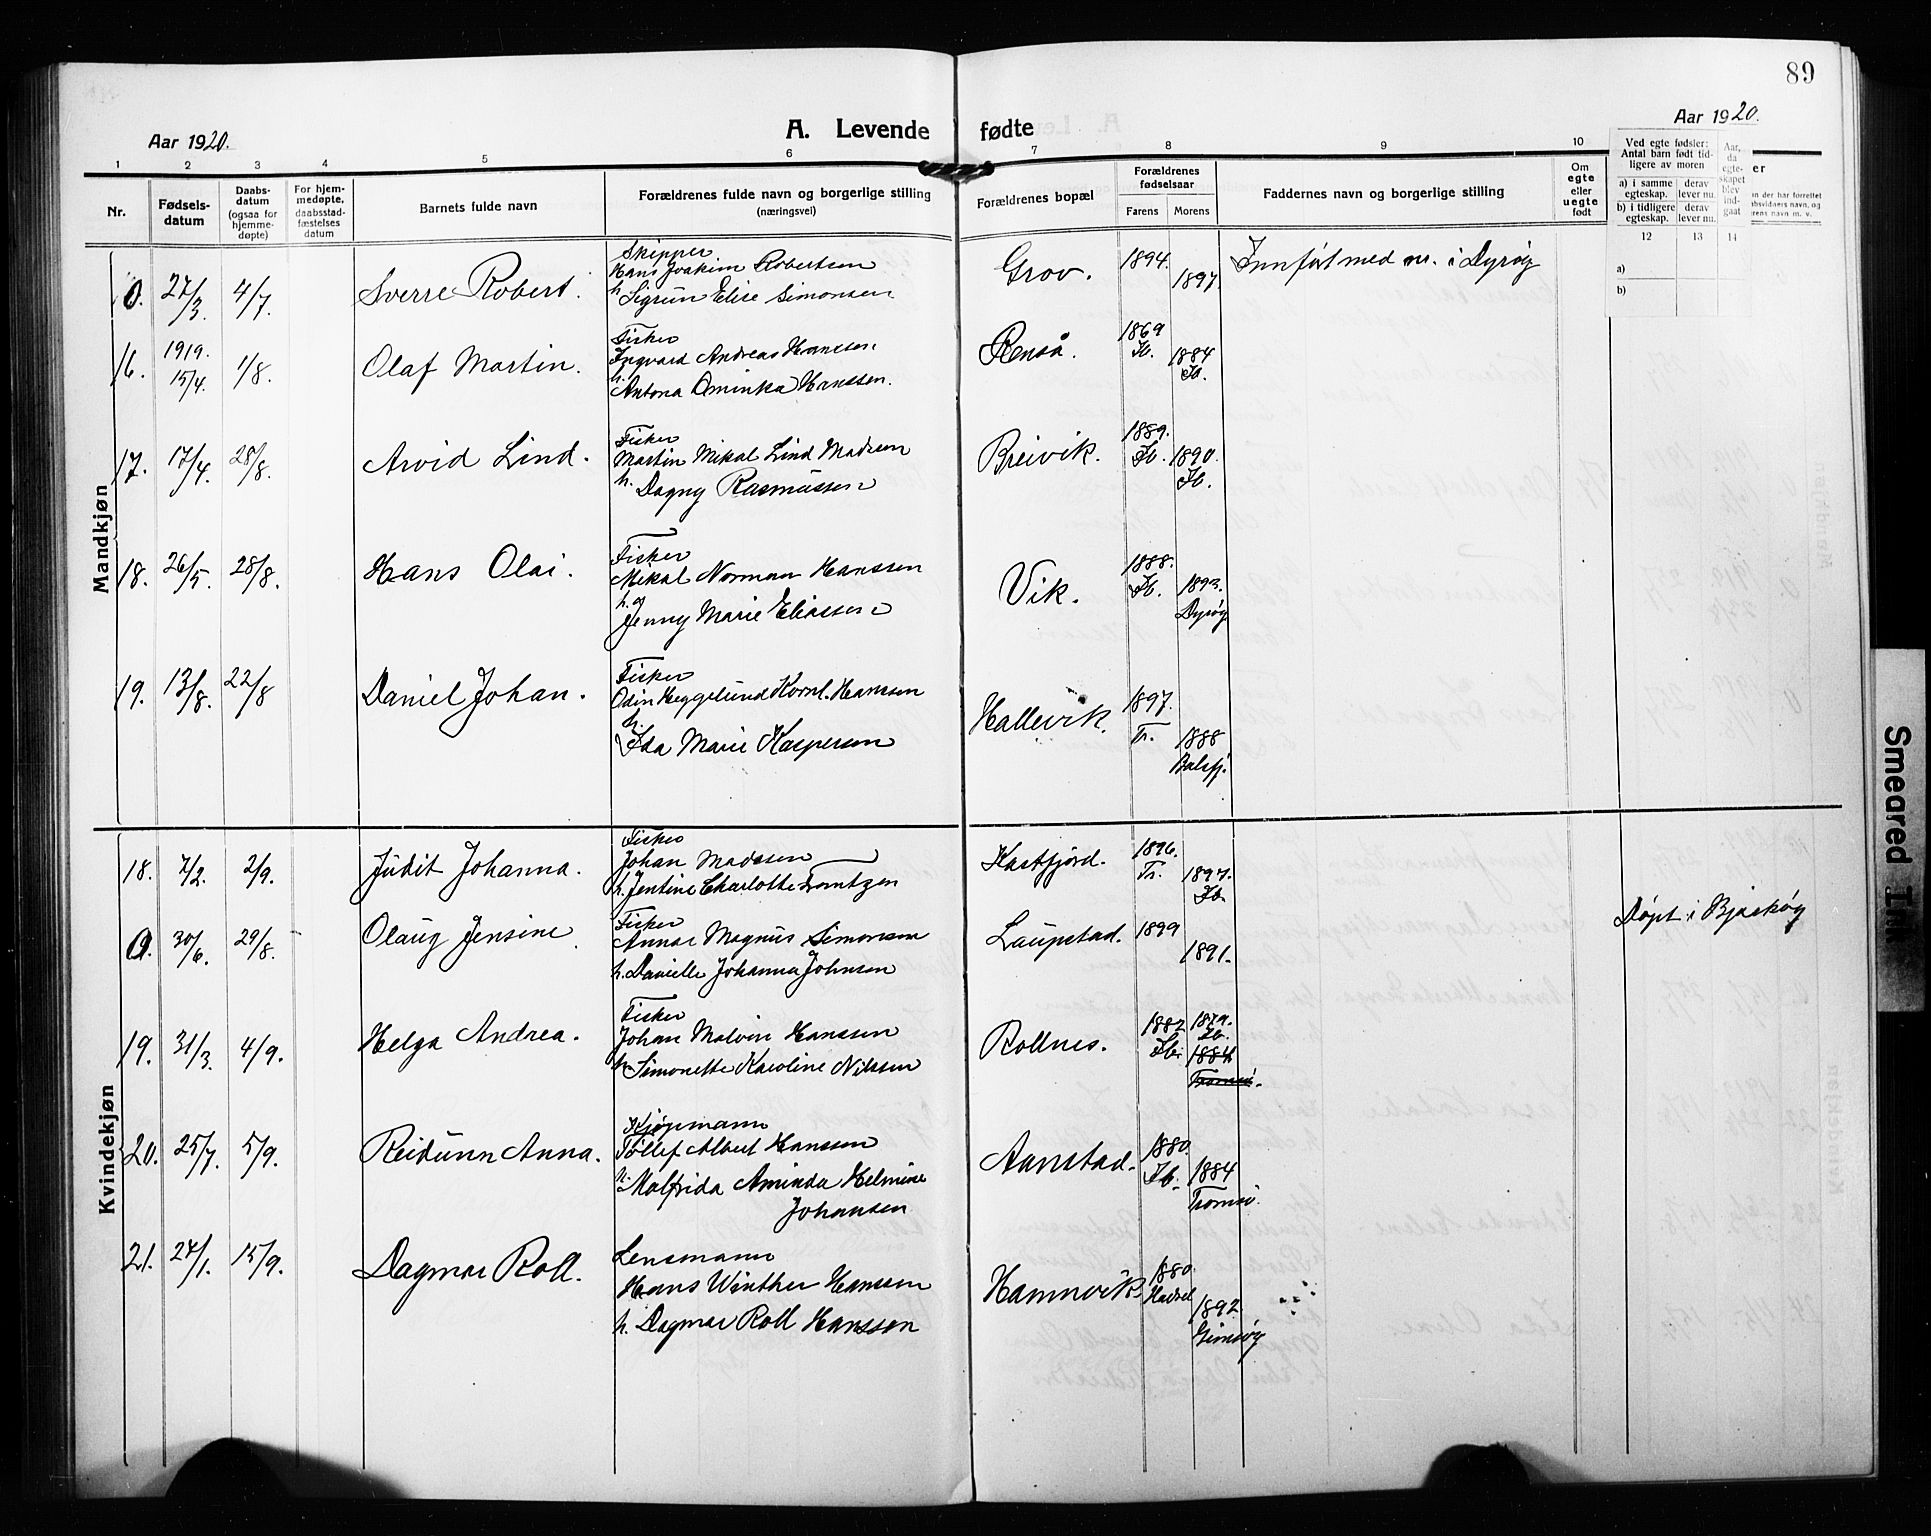 89
Aar 1920.
A. Levende
fødte
Aar 1920.
1 2 3 4 5 6 7 8 9 10
Nr.
Fødsels-
datum
Daabs-
datum
(ogsaa for
hjemme-
døpte)
For hjem-
medøpte,
daabsstad-
fæstelses
datum
Barnets fulde navn
Forældrenes fulde navn og borgerlige stilling
(næringsvei)
Forældrenes bopæl
Forældrenes
fødselsaar
Farens Morens
Faddernes navn og borgerlige stilling
Om
egte
eller
uegte
født
Ved egte fødsler:
Antal barn født tid-
ligere av moren
a) i samme
egteskap.
derav
lever nu.
b) i tidligere
egteskap.
derav
lever nu.
Aar,
da
egte-
skapet
blev
ind-
gaat
12 13 14
a)
b)
Mandkjøn
0. 27/3. 4/7. Sverre Robert.
Skipper
Hans Joakim Robertsen
h. Sigrun Elise Simonsen
Grov. 1894. 1897. Innført med nr. i Dyrøy
16. 1919. 15/4. 1/8. Olaf Martin.
Fisker
Ingvard Andreas Hanssen.
h. Antona Aminka Hanssen.
Renså. 1869 Ib. 1884 Ib.
17. 17/4. 28/8. Arvid Lind.
Fisker
Martin Mikal Lind Madsen
h. Dagny Rasmussen
Breivik. 1889. Ib. 1890. Ib.
18. 26/5. 28/8. Hans Olai.
Fisker
Mikal Norman Hanssen
h. og
Jenny Marie Eliassen
Vik. 1888. Ib. 1893. Dyrøy
19. 13/8. 22/8 Daniel Johan.
Fisker
Odin Heggelund Kornl. Hanssen
h.
Ida Marie Kaspersen
Hallevik. 1897. Tr. 1888 Balsfj.
Kvindekjøn
18. 7/2. 2/9. Judit Johanna.
Fisker
Johan Madssen
h. Jentine Charlotte Lorntzen
Kastfjord. 1896. Tr. 1897. Ib.
0. 30/6. 29/8. Olaug Jensine
Fisker
Annar Magnus Simonsen
h. Danielle Johanna Johnsen
Laupstad. 1899 1891. Døpt i Bjarkøy
19. 31/3. 4/9. Helga Andrea.
Fisker
Johan Malvin Hanssen
h. Simonette Karoline Nilssen
Rollnes. 1882 Ib. 1879. Ib.
1884
Tromsø.
20. 25/7. 5/9. Reidunn Anna.
Kjøpmann
Tollef Albert Hanssen
h. Malfrida Aminda Helmine
Johansen
Aanstad. 1880. Ib. 1884 Tromsø.
21. 24/1. 15/9. Dagmar Roll.
Lensmann
Hans Winther Hanssen
h. Dagmar Roll Hanssen
Hamnvik. 1880. Hadsel 1892. Gimsøy
Smeared Ink